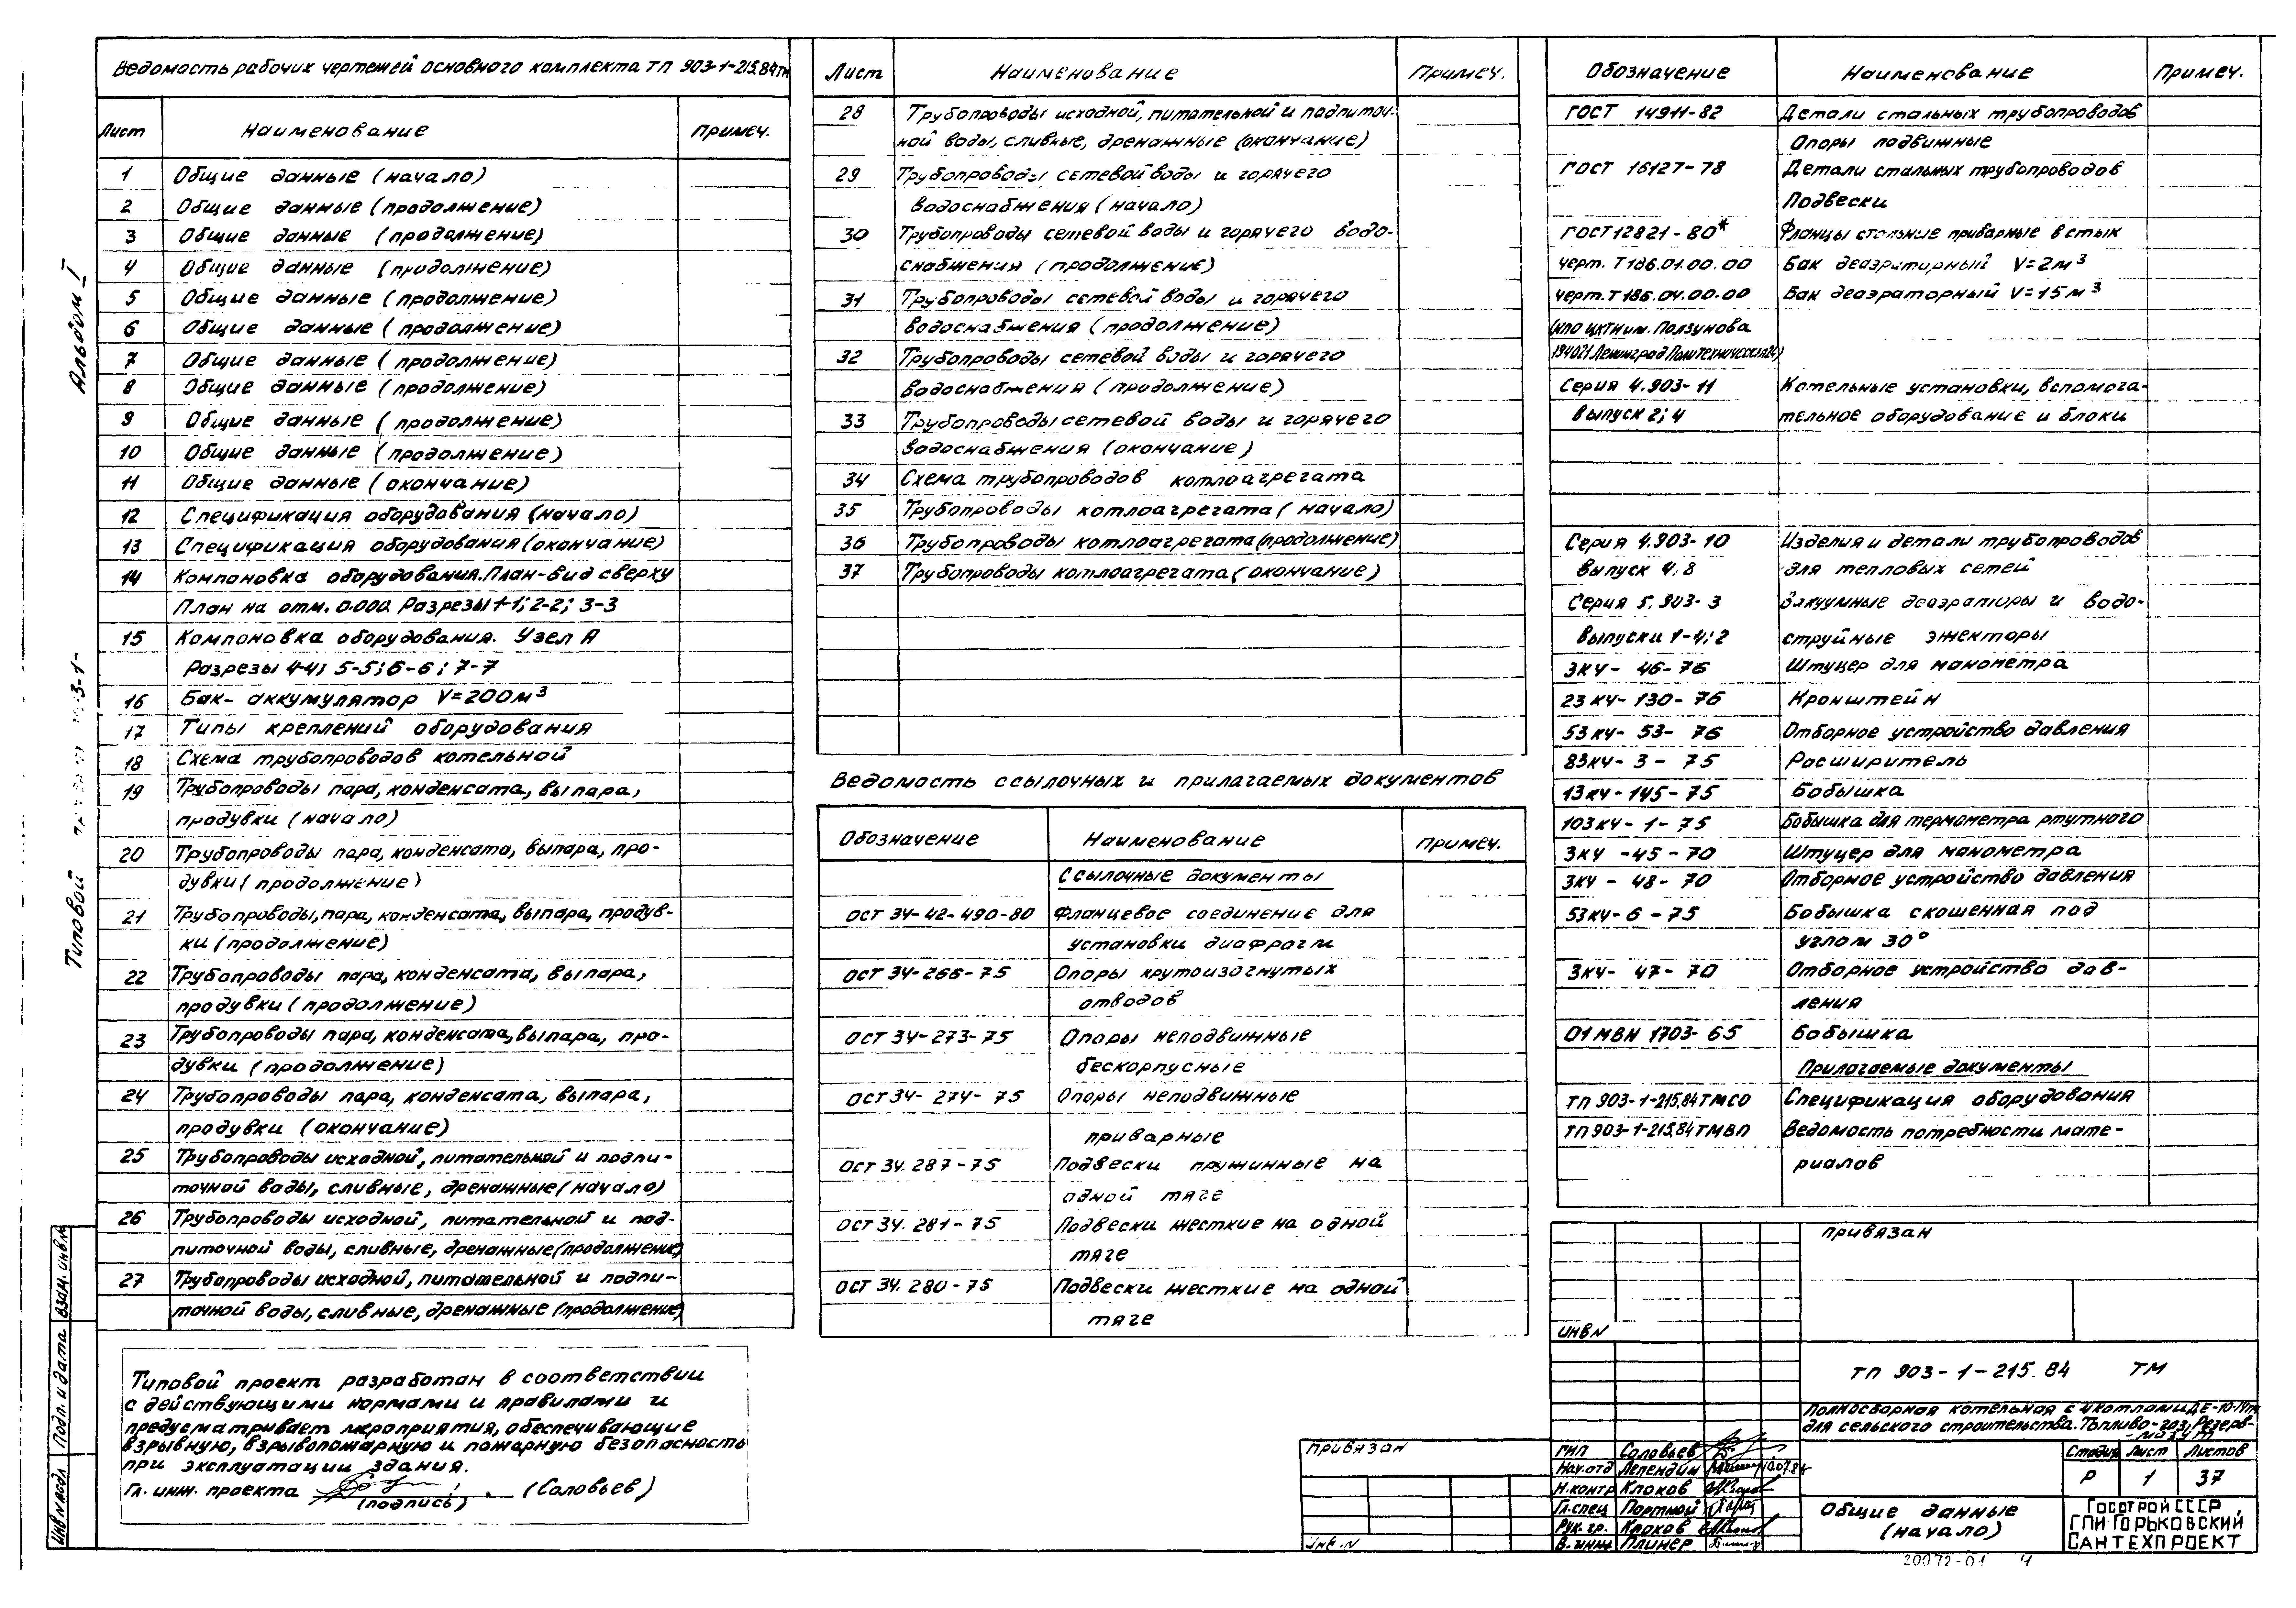 Ведомость рабочих чертежей основного комплекта ТП 903-1-215.84ТМ
Лист Наименование Примеч.
1 Общие данные (начало)
2 Общие данные (продолжение)
3 Общие данные (продолжение)
4 Общие данные (продолжение)
5 Общие данные (продолжение)
6 Общие данные (продолжение)
7 Общие данные (продолжение)
8 Общие данные (продолжение)
9 Общие данные (продолжение)
10 Общие данные (продолжение)
11 Общие данные (окончание)
12 Спецификация оборудования (начало)
13 Спецификация оборудования (окончание)
14 Компоновка оборудования. План-вид сверху
План на отм. 0.000. Разрезы 1-1; 2-2; 3-3
15 Компоновка оборудования. Узел А
Разрезы 4-4; 5-5; 6-6; 7-7
16 Бак-аккумулятор V=200м³
17 Типы креплений оборудования
18 Схема трубопроводов котельной
19 Трубопроводы пара, конденсата, выпара,
продувки (начало)
20 Трубопроводы пара, конденсата, выпара, про-
дувки (продолжение)
21 Трубопроводы, пара, конденсата, выпара, продув-
ки (продолжение)
22 Трубопроводы пара, конденсата, выпара,
продувки (продолжение)
23 Трубопроводы пара, конденсата, выпара, про-
дувки (продолжение)
24 Трубопроводы пара, конденсата, выпара,
продувки (окончание)
25 Трубопроводы исходной, питательной и подпи-
точной воды, сливные, дренажные (начало)
26 Трубопроводы исходной, питательной и под-
питочной воды, сливные, дренажные (продолжение)
27 Трубопроводы исходной, питательной и подпи-
точной воды, сливные, дренажные (продолжение)
Типовой проект разработан в соответствии
с действующими нормами и правилами и
предусматривает мероприятия, обеспечивающие
взрывную, взрывопожарную и пожарную безопасность
при эксплуатации здания.
Гл. инж. проекта (Соловьев)
(подпись)
Лист Наименование Примеч.
28 Трубопроводы исходной, питательной и подпиточ-
ной воды, сливные, дренажные (окончание)
29 Трубопроводы сетевой воды и горячего
водоснабжения (начало)
30 Трубопроводы сетевой воды и горячего водо-
снабжения (продолжение)
31 Трубопроводы сетевой воды и горячего
водоснабжения (продолжение)
32 Трубопроводы сетевой воды и горячего
водоснабжения (продолжение)
33 Трубопроводы сетевой воды и горячего
водоснабжения (окончание)
34 Схема трубопроводов котлоагрегата
35 Трубопроводы котлоагрегата (начало)
36 Трубопроводы котлоагрегата (продолжение)
37 Трубопроводы котлоагрегата (окончание)
Ведомость ссылочных и прилагаемых документов
Обозначение Наименование Примеч.
Ссылочные документы
ОСТ 34-42-490-80 Фланцевое соединение для
установки диафрагм
ОСТ 34-266-75 Опоры крутоизогнутых
отводов
ОСТ 34-273-75 Опоры неподвижные
бескорпусные
ОСТ 34-274-75 Опоры неподвижные
приварные
ОСТ 34.287-75 Подвески пружинные на
одной тяге
ОСТ 34.281-75 Подвески жесткие на одной
тяге
ОСТ 34.280-75 Подвески жесткие на одной
тяге
Обозначение Наименование Примеч.
ГОСТ 14911-82 Детали стальных трубопроводов
Опоры подвижные
ГОСТ 16127-78 Детали стальных трубопроводов
Подвески
ГОСТ 12821-80* Фланцы стальные приварные встык
черт. Т186.01.00.00 Бак деаэраторный V=2м³
черт. Т186.04.00.00 Бак деаэраторный V=15м³
НПО ЦКТИ им. Ползунова
194021 Ленинград
Серия 4.903-11 Котельные установки, вспомога-
выпуск 2; 4 тельное оборудование и блоки
Серия 4.903-10 Изделия и детали трубопроводов
выпуск 4; 8 для тепловых сетей
Серия 5.903-3 Вакуумные деаэраторы и водо-
выпуски 1-4; 2 струйные эжекторы
3КЧ-46-76 Штуцер для манометра
23КЧ-130-76 Кронштейн
53КЧ-53-76 Отборное устройство давления
83КЧ-3-75 Расширитель
13КЧ-145-75 Бобышка
103КЧ-1-75 Бобышка для термометра ртутного
3КЧ-45-70 Штуцер для манометра
3КЧ-48-70 Отборное устройство давления
53КЧ-6-75 Бобышка скошенная под
углом 30°
3КЧ-47-70 Отборное устройство дав-
ления
01 МВН 1703-65 Бобышка
Прилагаемые документы
ТП 903-1-215.84 ТМСО Спецификация оборудования
ТП 903-1-215.84 ТМВП Ведомость потребности мате-
риалов
привязан
инв N
ТП 903-1-215.84 ТМ
Полносборная котельная с 4 котлами ДЕ-10-14гм
для сельского строительства. Топливо-газ; Резерв-
-мазут
привязан
инв. N
ГИП Соловьев
Нач.отд Лепендин 10.07.84
Н.контр Клоков
Гл.спец Портной
Рук.гр. Клоков
В.инж Плинер
Стадия Лист Листов
Р 1 37
Общие данные
(начало)
Госстрой СССР
ГПИ Горьковский
Сантехпроект
20072-01 4
Альбом I
Типовой
Взам. инв.N
Подп. и дата
Инв N подл